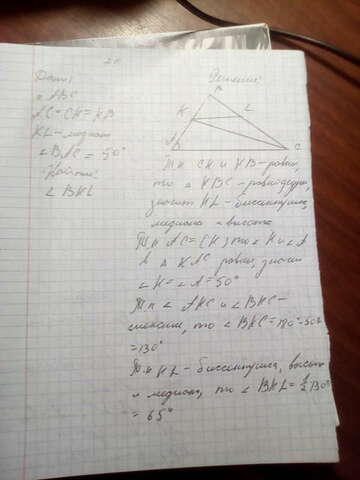 Дано:
△ ABC
AC = CK = KB
KL - медиана
∠BAC = 50°
Найти:
∠ BKL
Решение:
B
K
L
A
C
Т.к CK и KB - равны,
то △ KBC - равнобедр,
значит KL - биссектриса,
медиана и высота
Т.к AC = CK, то ∠ K и ∠ A
в △ KAC равны, значит
∠K = ∠A = 50°
Т.к ∠ AKC и ∠ BKC -
смежные, то ∠ BKC = 180° - 50°
= 130°
Т.к KL - биссектриса, высота
и медиана, то ∠ BKL = ½ 130°
= 65°